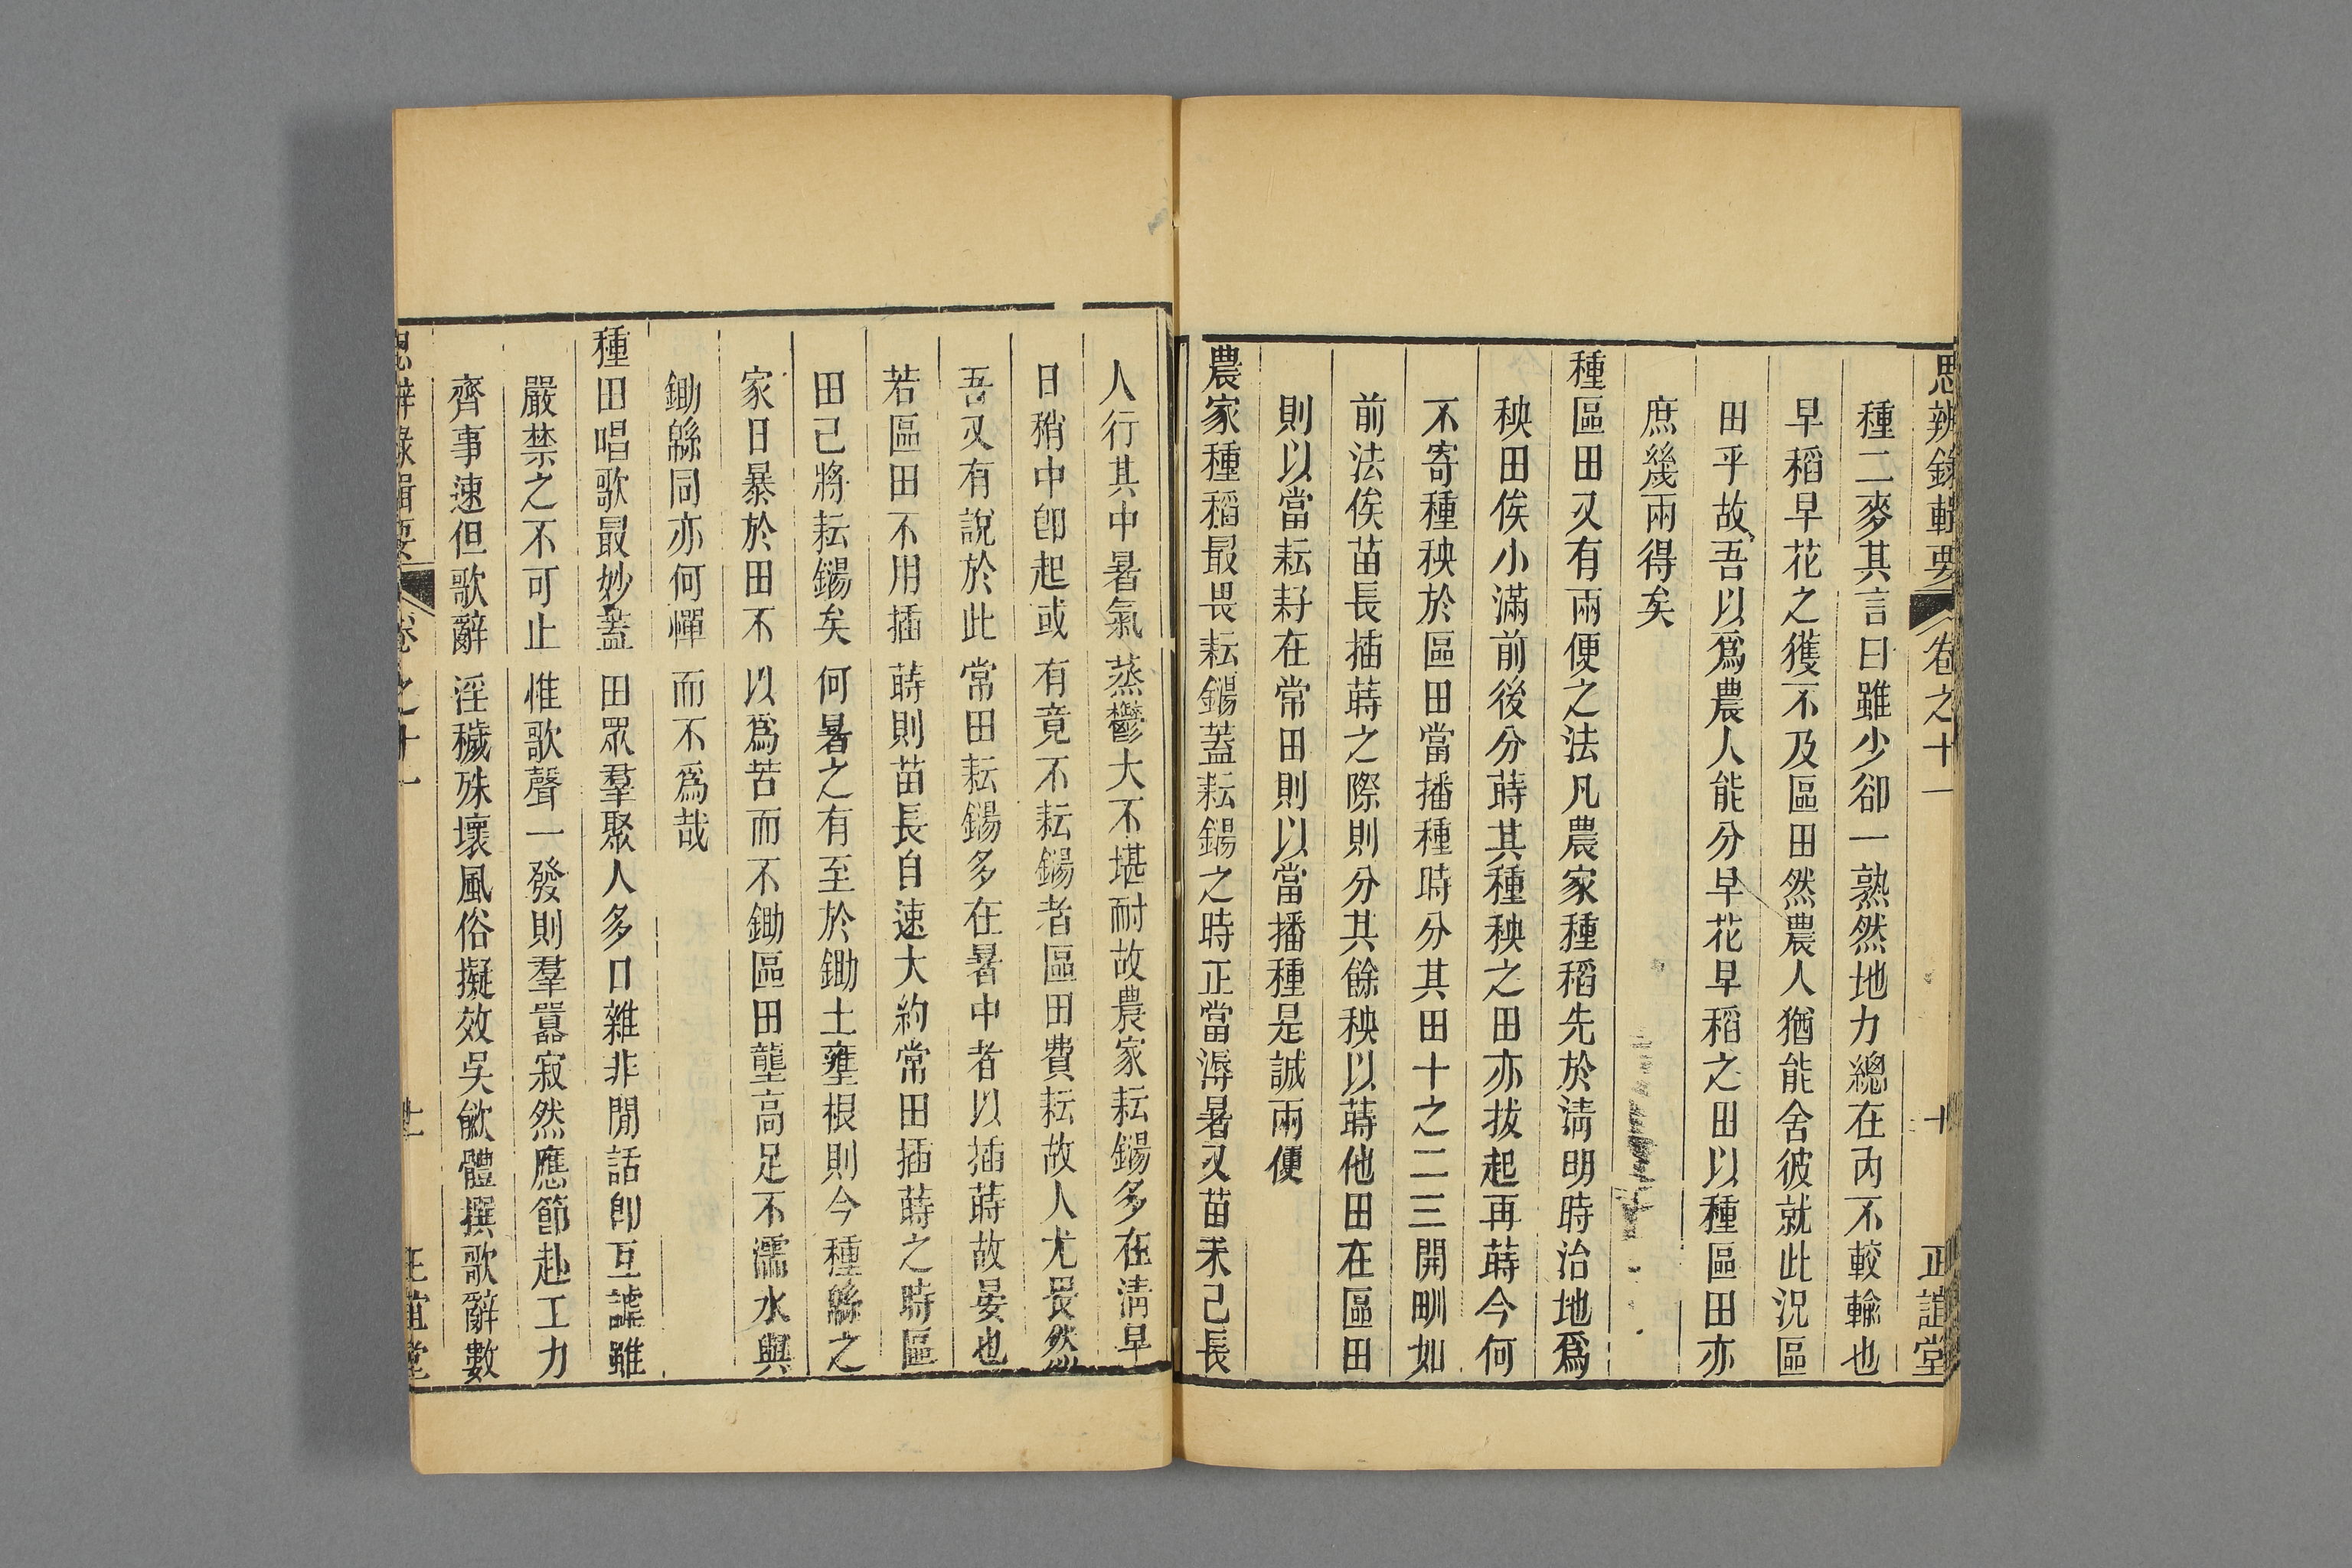 思辨錄輯要 卷之十一 十 正誼堂
種二麥其言曰雖少卻一熟然地力總在內不較輸也
早稻早花之獲不及區田然農人猶能舍彼就此況區
田乎故吾以爲農人能分早花早稻之田以種區田亦
庶幾兩得矣
種區田又有兩便之法凡農家種稻先於淸明時治地爲
秧田俟小滿前後分蒔其種秧之田亦拔起再蒔今何
不寄種秧於區田當播種時分其田十之二三開甽如
前法俟苗長插蒔之際則分其餘秧以蒔他田在區田
則以當耘耔在常田則以當播種是誠兩便
農家種稻最畏耘鐋蓋耘鐋之時正當溽暑又苗禾已長
人行其中暑氣蒸鬱大不堪耐故農家耘鐋多在淸早
日稍中卽起或有竟不耘鐋者區田費耘故人尤畏然
吾又有說於此常田耘鐋多在暑中者以插蒔故晏也
若區田不用插蒔則苗長自速大約常田插蒔之時區
田已將耘鐋矣何暑之有至於鋤土壅根則今種緜之
家日暴於田不以爲苦而不鋤區田壟高足不濡水與
鋤緜同亦何憚而不爲哉
種田唱歌最妙蓋田眾羣聚人多口雜非閒話卽互謔雖
嚴禁之不可止惟歌聲一發則羣囂寂然應節赴工力
齊事速但歌辭淫穢殊壞風俗擬效吳歈體撰歌辭數
思辨錄輯要 卷之十一 十一 正誼堂